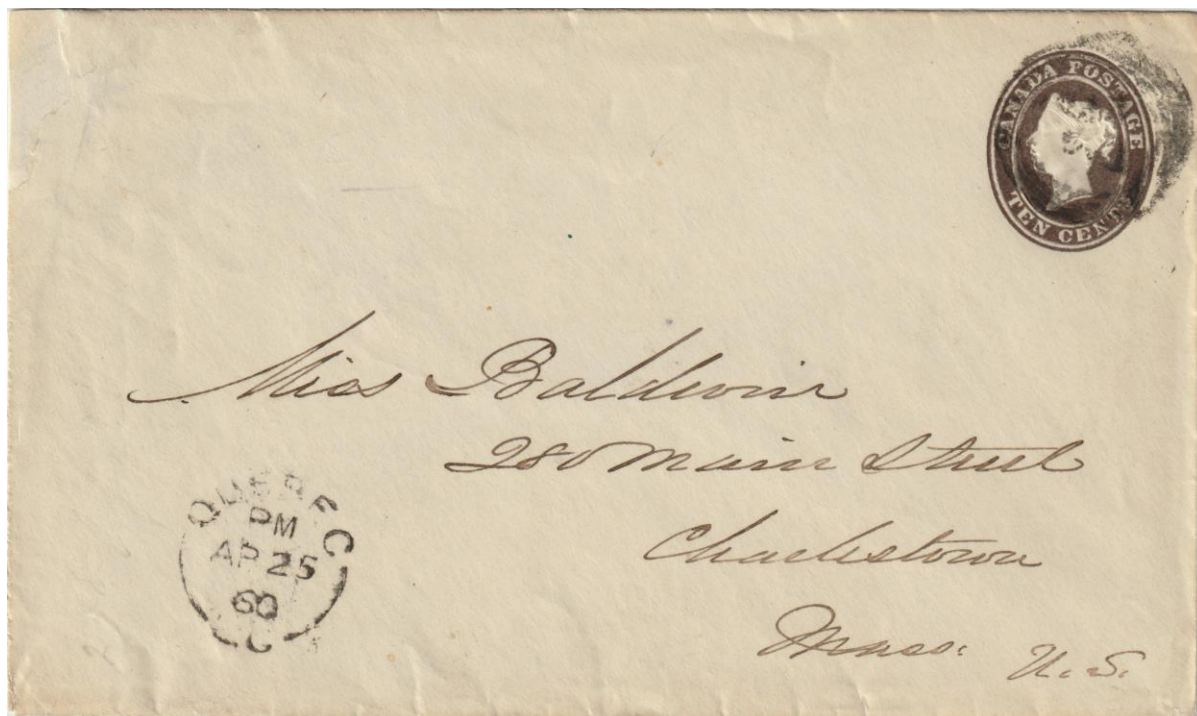 CANADA POSTAGE
TEN CENTS
Miss Baldwin
280 Main Street
Charlestown
Mass. U.S.
QUEBEC
PM
AP 25
60